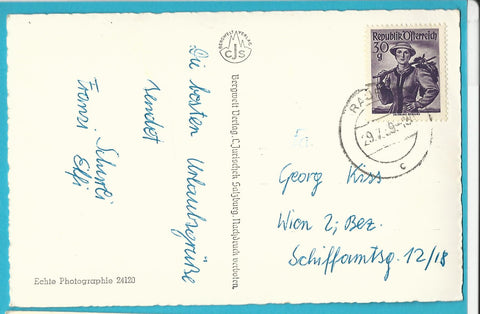 Die besten Urlaubsgrüße
sendet
Franzi
Elfi
BERGWELT VERLAG
CJS
Bergwelt Verlag, C. Jurischek, Salzburg. Nachdruck verboten.
Republik Österreich
30
g
29.7.
c
Georg Kiss
Wien 2; Bez.
Schiffamtsg. 12/18
Echte Photographie 24120